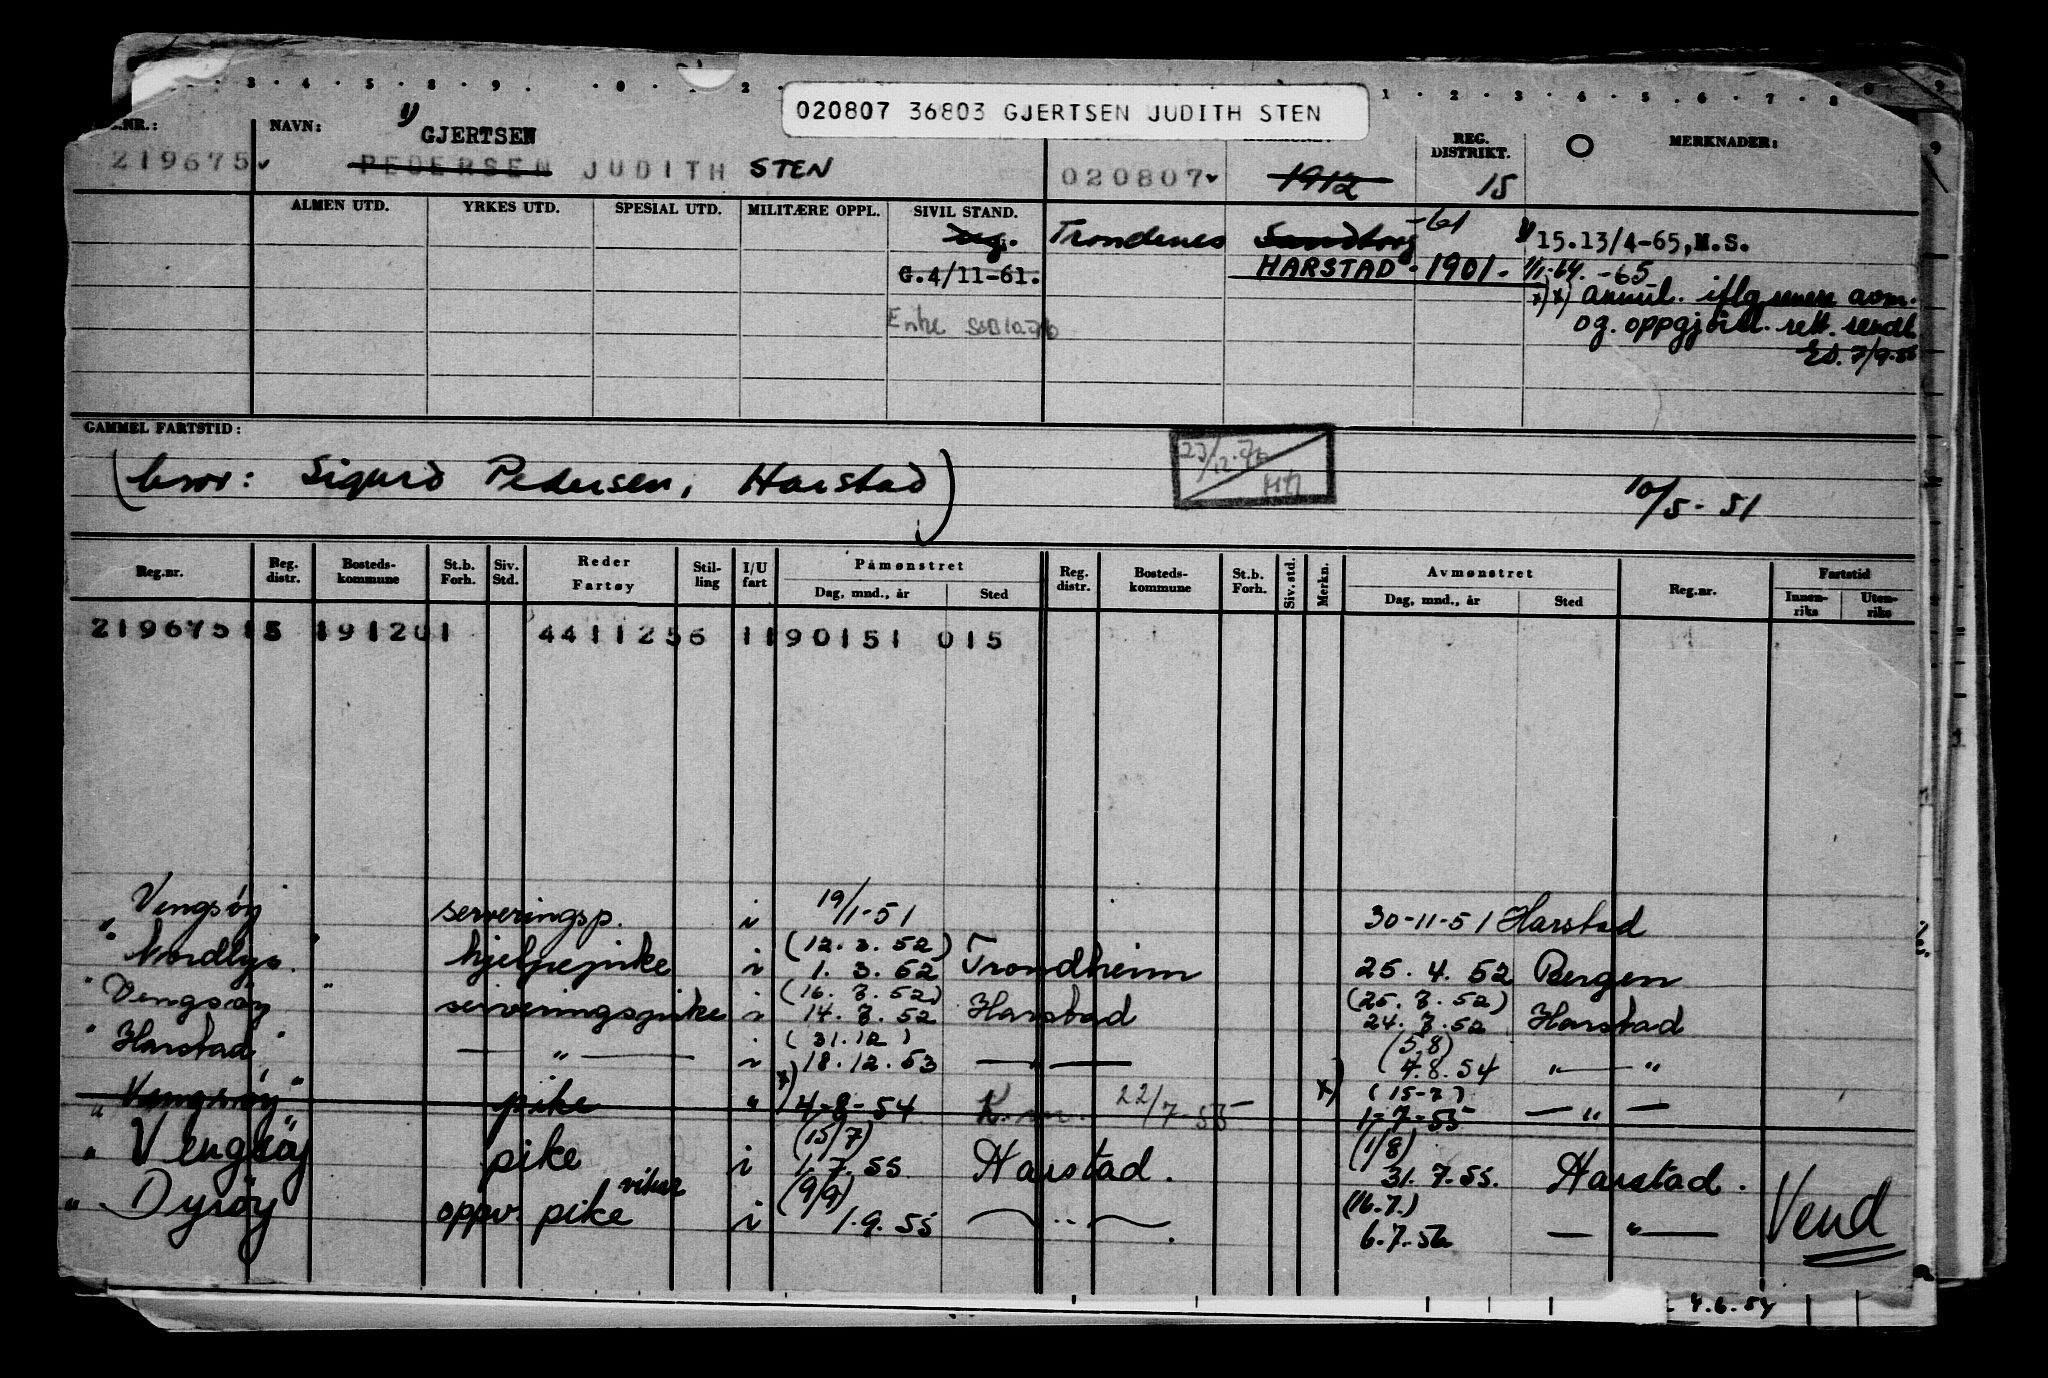 020807 36803 GJERTSEN JUDITH STEN
NR.: NAVN: REG. DISTRIKT. MERKNADER:
1) GJERTSEN
219675 PEDERSEN JUDITH STEN 020807 1912 15
ALMEN UTD. YRKES UTD. SPESIAL UTD. MILITÆRE OPPL. SIVIL STAND.
ug. Trondenes Sandtorg -61 1) 15.13/4-65, M.S.
G.4/11-61. HARSTAD - 1901. 1/1-64. -65
Enke x) x) annul. iflg senere avm.
og. oppgjort. rett. sendt
Ed. 7/9-55
GAMMEL FARTSTID:
(bror: Sigurd Pedersen, Harstad)
10/5-51
Reg.nr. Reg. distr. Bosteds-kommune St.b. Forh. Siv. Std. Reder Fartøy Stil-ling I/U fart Påmønstret Dag, mnd., år Sted Reg. distr. Bosteds-kommune St.b. Forh. Siv. std. Merkn. Avmønstret Dag, mnd., år Sted Reg.nr. Fartstid Innen-riks Uten-riks
219675 15 191201 4411256 1190151 015
Vengsøy serveringsp. i 19/1-51 30-11-51 Harstad
(12.3.52)
" Nordlys " hjelpepike i 1.3.52 Trondheim 25.4.52 Bergen
(16.7.52) (25.7.52)
" Vengsøy " serveringspike i 14.7.52 Harstad 24.7.52 Harstad
(31.12) (5.8)
" Harstad " — " — i 18.12.53 — " — 4.8.54 — " —
x) x) (15-7)
" Vengsøy " pike " 4-8-54 K.m. 22/7-55 1-7-55 — " —
(15/7) (1/8)
" Vengsøy pike i 1.7.55 Harstad. 31.7.55. Harstad.
(9/9) (16.7.)
" Dyrøy oppv. pike vikar i 1.9.55 — " — 6.7.56 — " — Vend
4.6.54